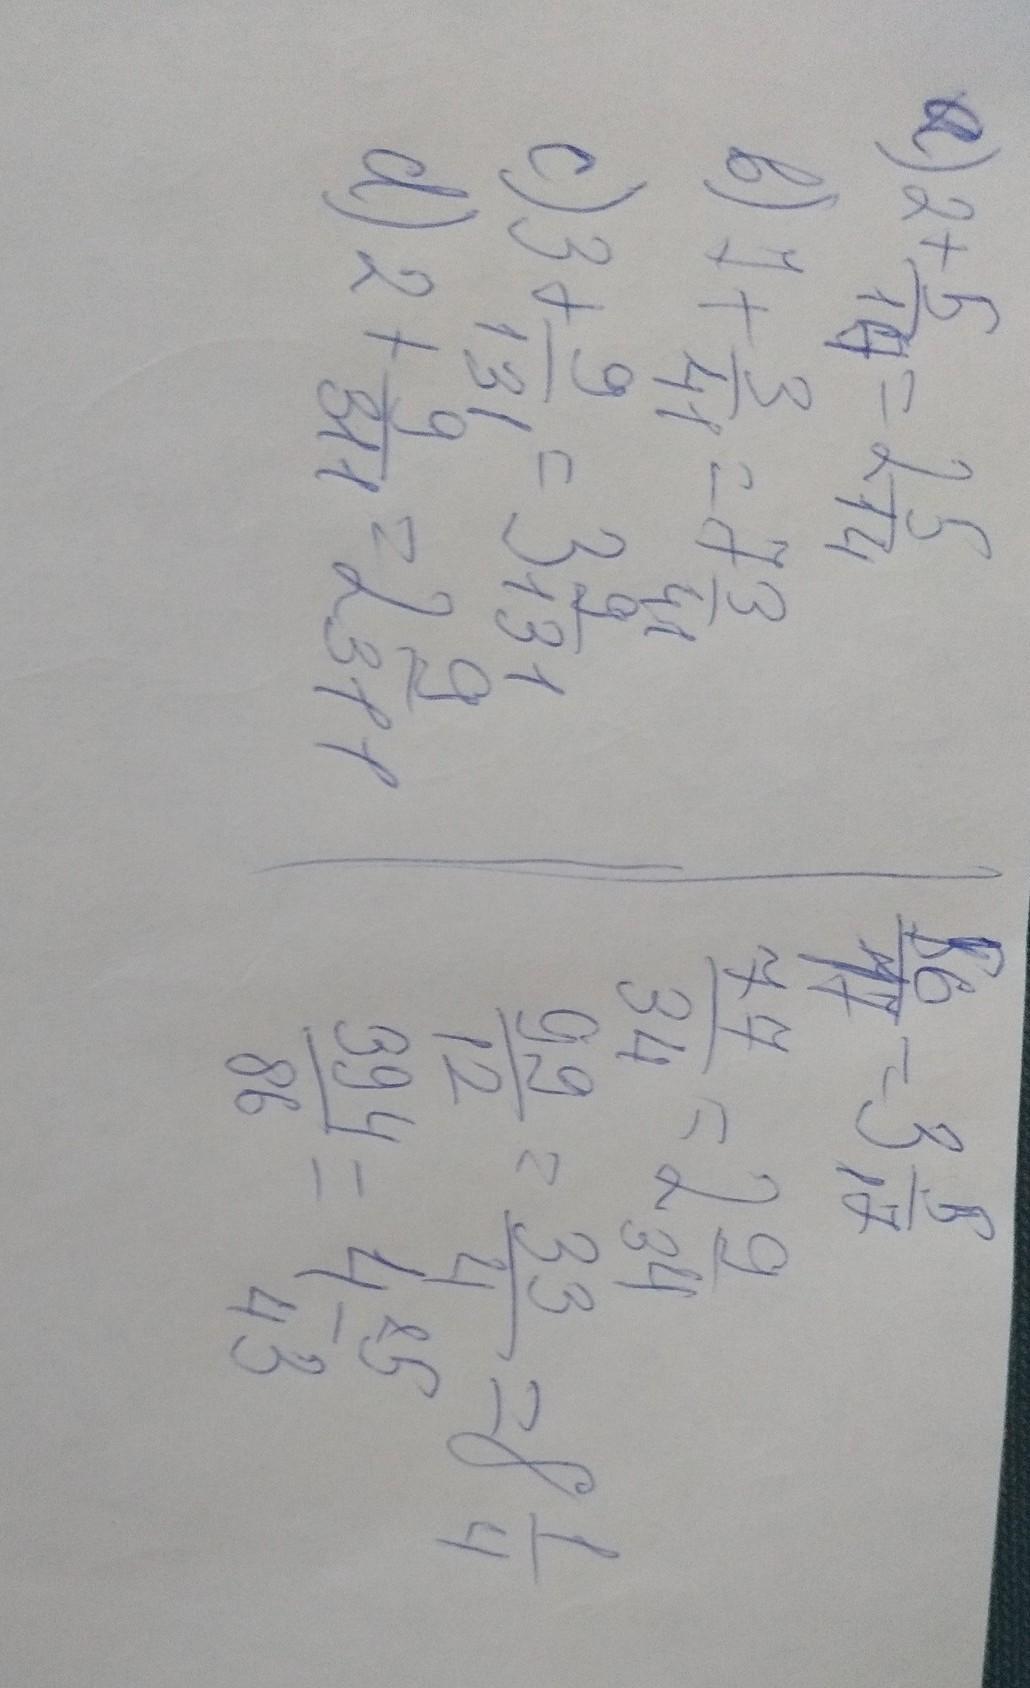 a) 2 + 5/14 = 2 5/14
b) 7 + 3/41 = 7 3/41
c) 3 + 9/131 = 3 9/131
d) 2 + 9/311 = 2 9/311
56/17 = 3 5/17
77/34 = 2 9/34
99/12 = 33/4 = 8 1/4
394/86 = 4 25/43